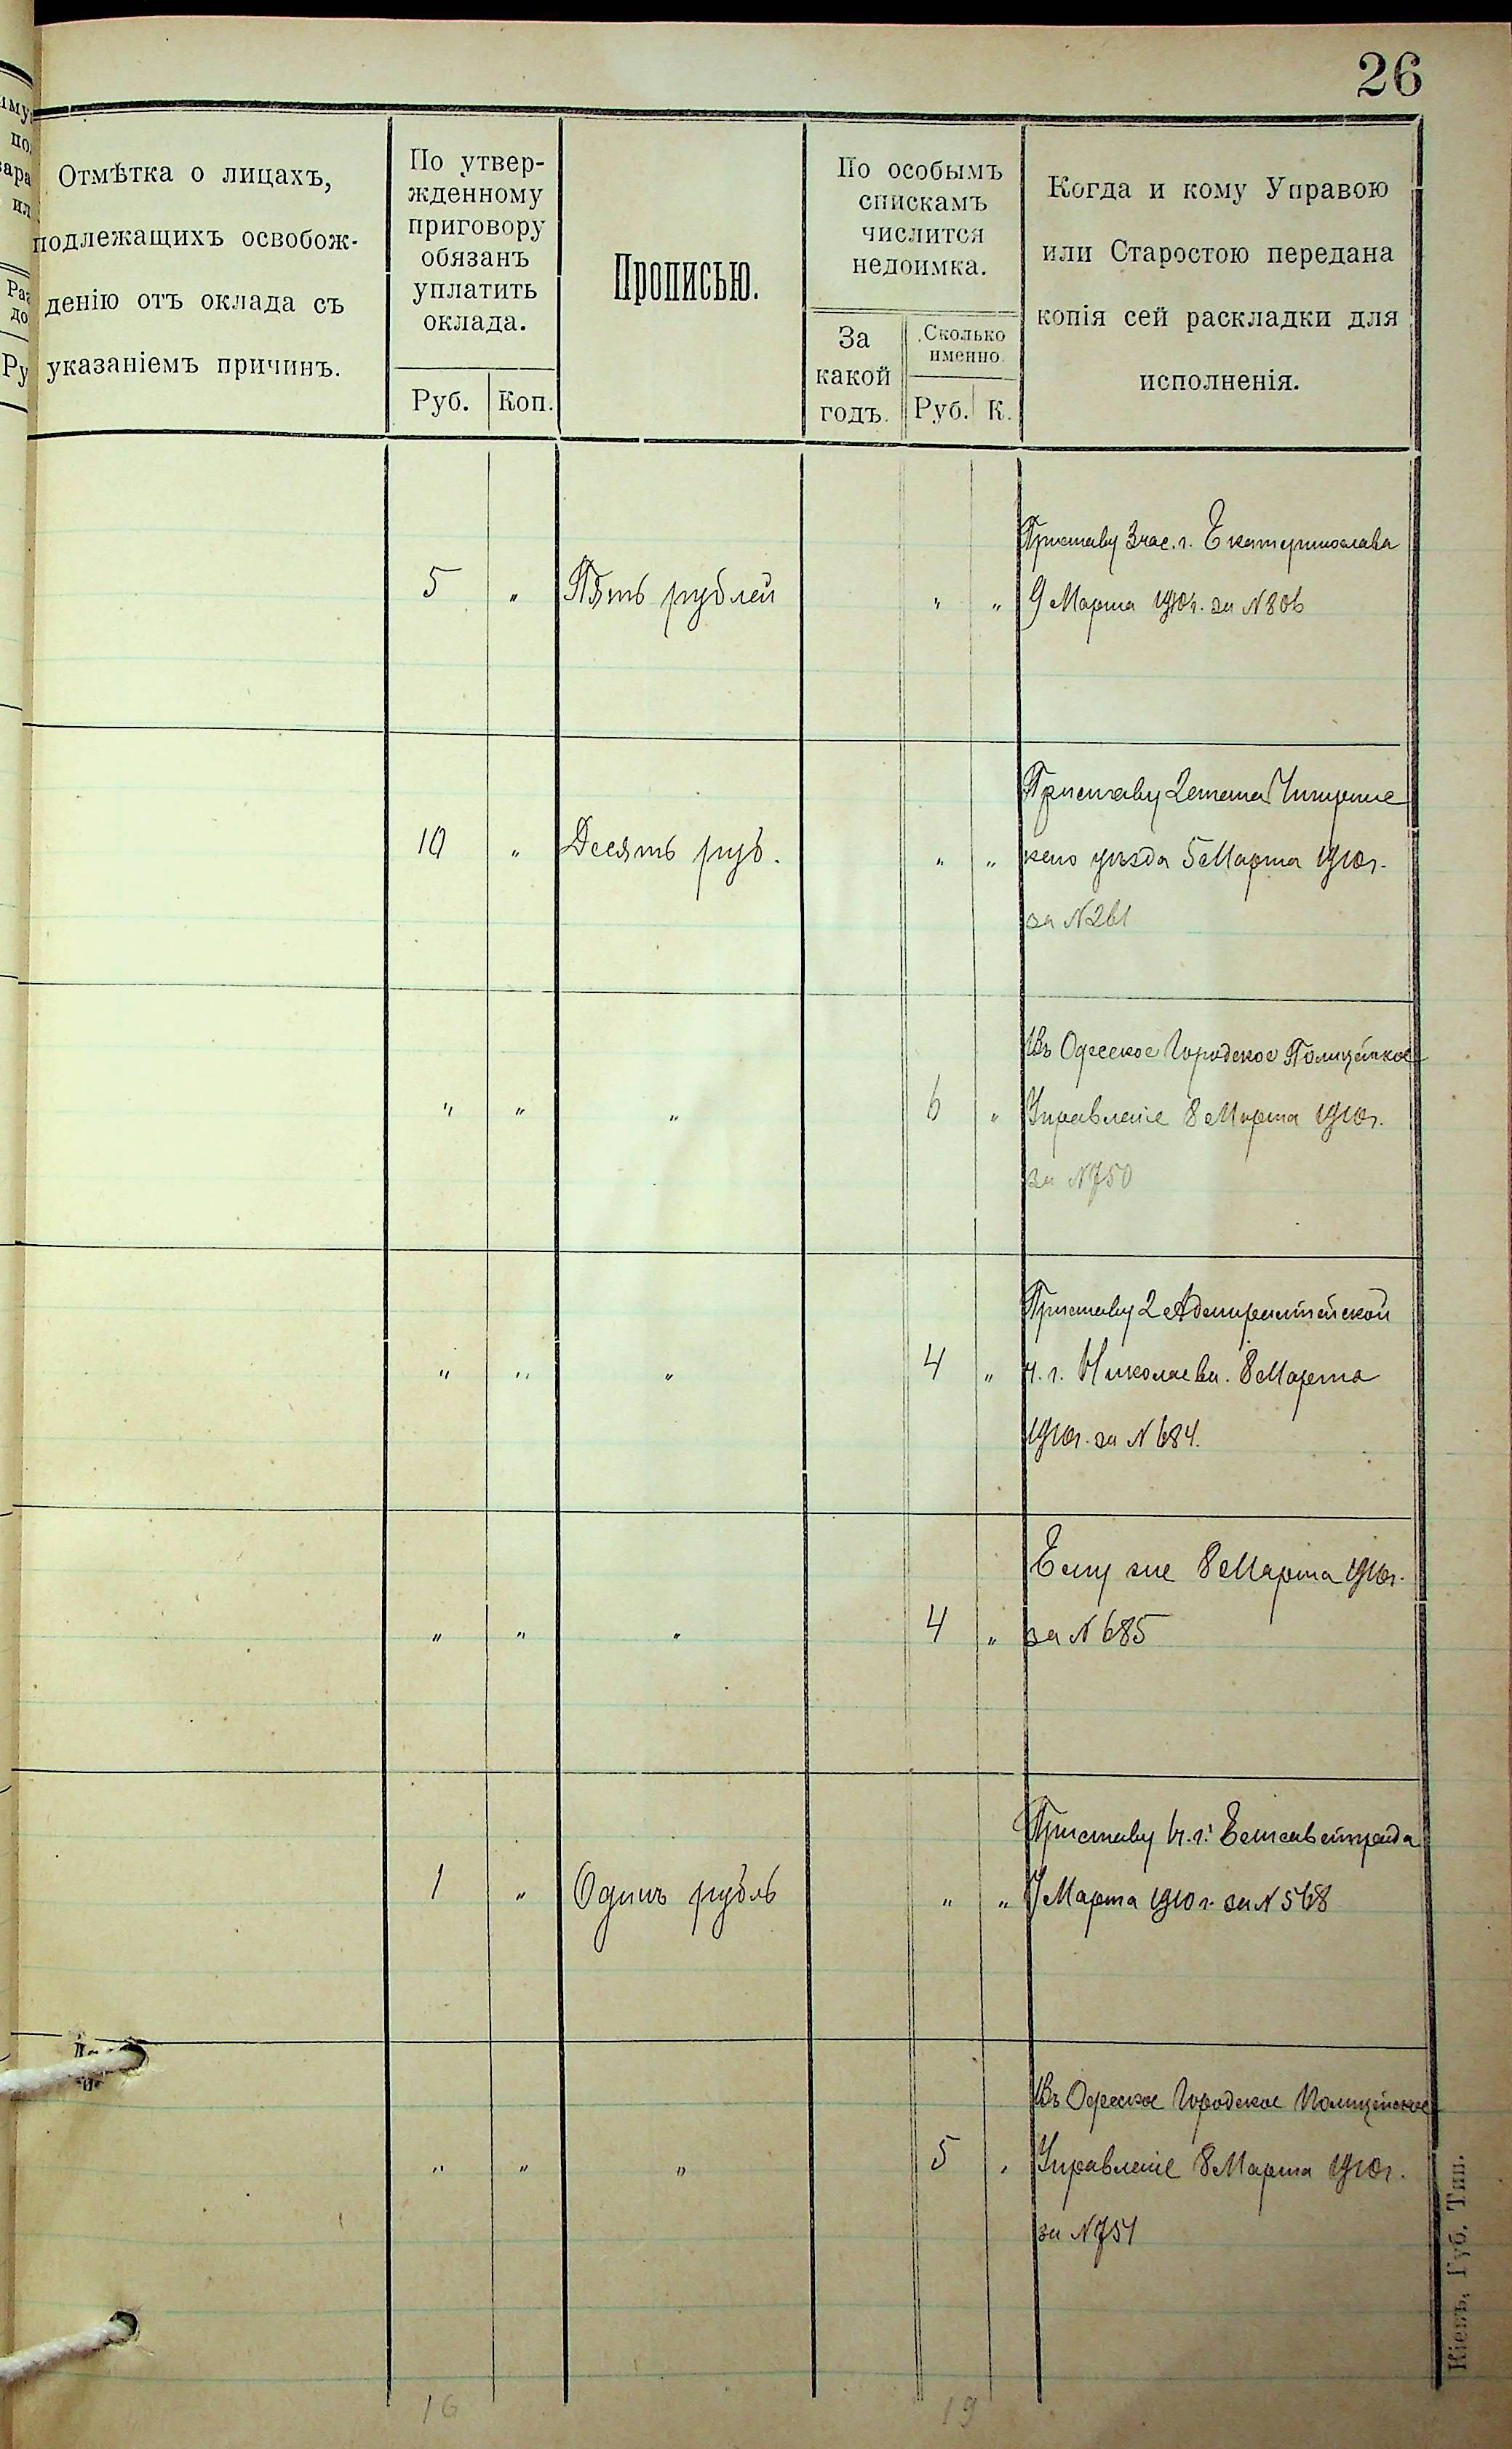 26
Отмѣтка о лицахъ,
подлежащихъ освобож-
денію отъ оклада съ
указаніемъ причинъ.
По утвер-
жденному
приговору
обязанъ
уплатить
оклада.
Руб.
Коп.
Прописью.
По особымъ
спискамъ
числится
недоимка.
За
какой
годъ.
Сколько
именно.
Руб.
К.
Когда и кому Управою
или Старостою передана
копія сей раскладки для
исполненія.
Приставу 3 час. г. Екатеринослава
5 " Пять рублей " " 9 Марта 1910 г. за N 806
Приставу 2 стана
10 " Десять руб. " " уѣзда 5 Марта 1910 г.
за N 261
Въ Одесское Городское Полицейское
" " " 6 " Управленіе 8 Марта 1910 г.
за N 750
Приставу 2 Адмиралтейской
" " " 4 " ч. г. Николаева. 8 Марта
1910 г. за N 684.
Ему же 8 Марта 1910 г.
" " " 4 " за N 685
Приставу ч. г. Елисаветграда
1 " Одинъ рубль " " 7 Марта 1910 г. за N 568
Въ Одесское Городское Полицейское
" " " 5 " Управленіе 8 Марта 1910 г.
за N 751
16 19
Кіевъ, Губ. Тип.